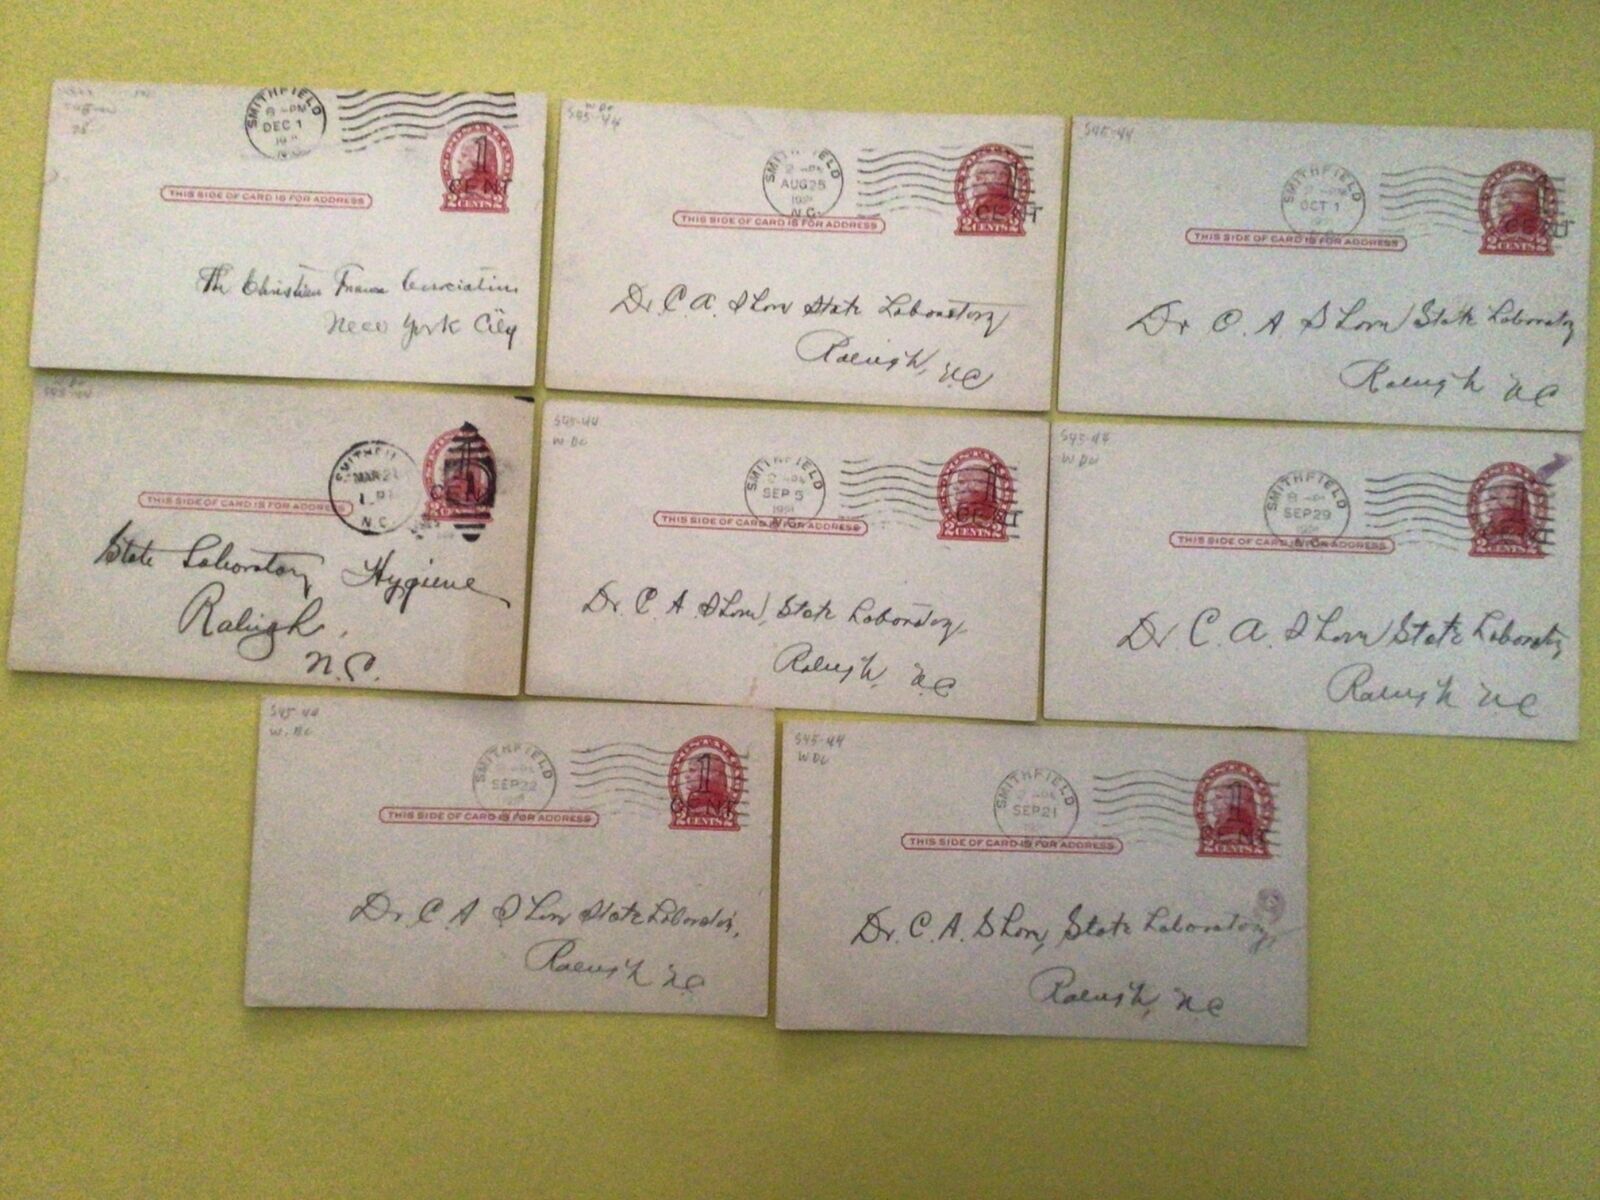 SMITHFIELD
DEC 1
1
CENT
2 CENTS 2
THIS SIDE OF CARD IS FOR ADDRESS
The Christian
New York City
W DC
S45-44
SMITHFIELD
AUG 25
N.C.
1
CENT
2 CENTS 2
THIS SIDE OF CARD IS FOR ADDRESS
Dr. C. A. Shore State Laboratory
Raleigh, N.C.
S45-44
SMITHFIELD
OCT 1
CENT
2 CENTS 2
THIS SIDE OF CARD IS FOR ADDRESS
Dr C. A Shore State Laboratory
Raleigh N C
S45-44
SMITHFIEL
MAR 21
N.C.
1
CENT
THIS SIDE OF CARD IS FOR ADDRESS
State Laboratory Hygiene
Raleigh,
N.C.
S45-44
W DC
SMITHFIELD
SEP 5
N.C.
1
CENT
2 CENTS 2
THIS SIDE OF CARD IS FOR ADDRESS
Dr C A Shore, State Laboratory
Raleigh, N.C
S45-44
W DC
SMITHFIELD
8 PM
SEP 29
2 CENTS 2
THIS SIDE OF CARD IS FOR ADDRESS
Dr. C. A. Shore State Laboratory
Raleigh N C
S45-44
W. DC
SMITHFIELD
SEP 22
1
CENT
2 CENTS 2
THIS SIDE OF CARD IS FOR ADDRESS
Dr. C A Shore State Laboratory
Raleigh N C
S45-44
W DC
SMITHFIELD
SEP 21
1
CENT
2 CENTS 2
THIS SIDE OF CARD IS FOR ADDRESS
Dr. C. A. Shore, State Laboratory
Raleigh, N.C